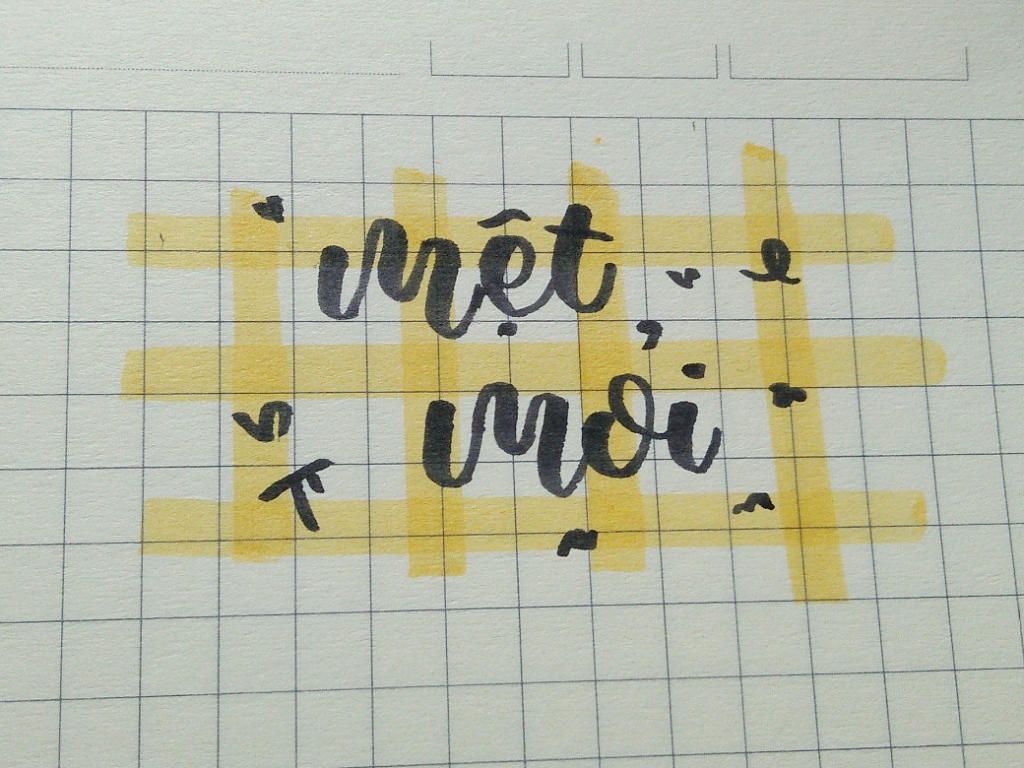 mệt
mỏi